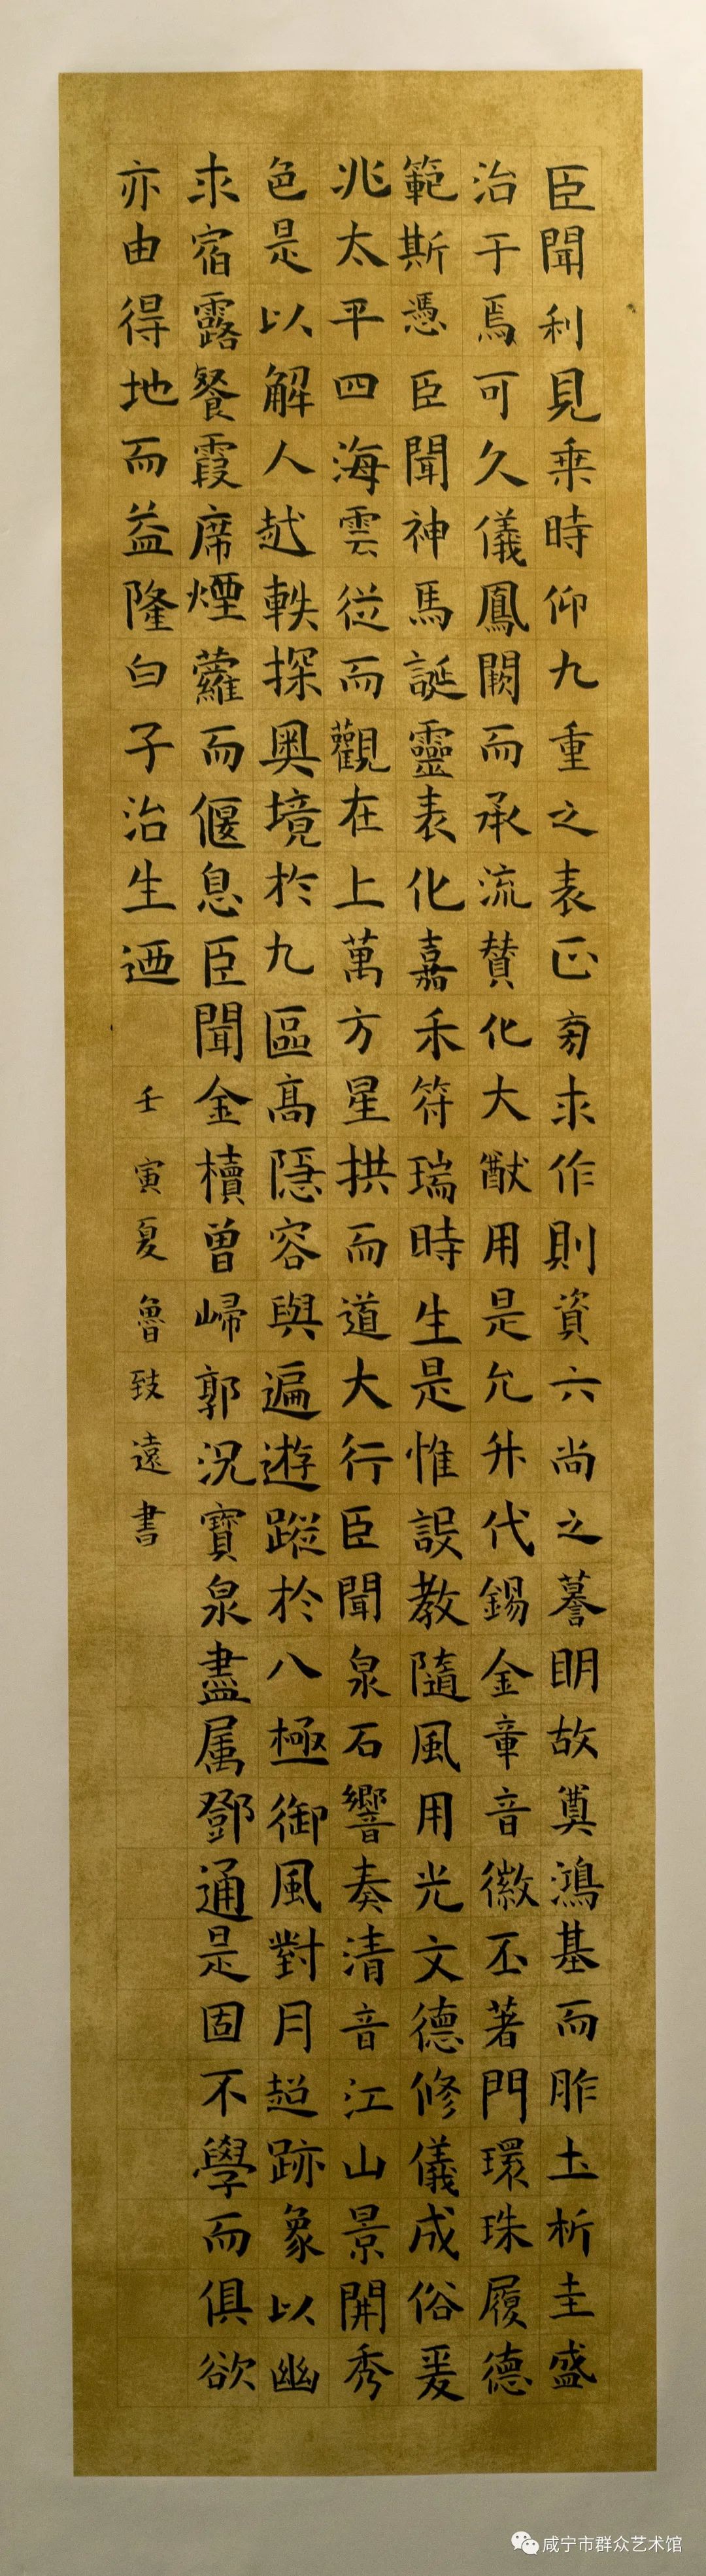 臣聞利見乗時仰九重之表正旁求作則資六尚之謩明故奠鴻基而胙土析圭盛
治于焉可久儀鳳闕而承流賛化大猷用是允升代錫金章音徽丕著門環珠履德
範斯憑臣聞神馬誕靈表化嘉禾符瑞時生是惟設教隨風用光文德修儀成俗爰
兆太平四海雲從而觀在上萬方星拱而道大行臣聞泉石響奏清音江山景開秀
色是以解人越軼探奥境於九區高隱容與遍遊蹤於八極御風對月超跡象以幽
求宿露餐霞席煙蘿而偃息臣聞金櫝曾歸郭況寶泉盡属鄧通是固不學而俱欲
亦由得地而益隆白子治生迺
壬寅夏魯致遠書
咸宁市群众艺术馆